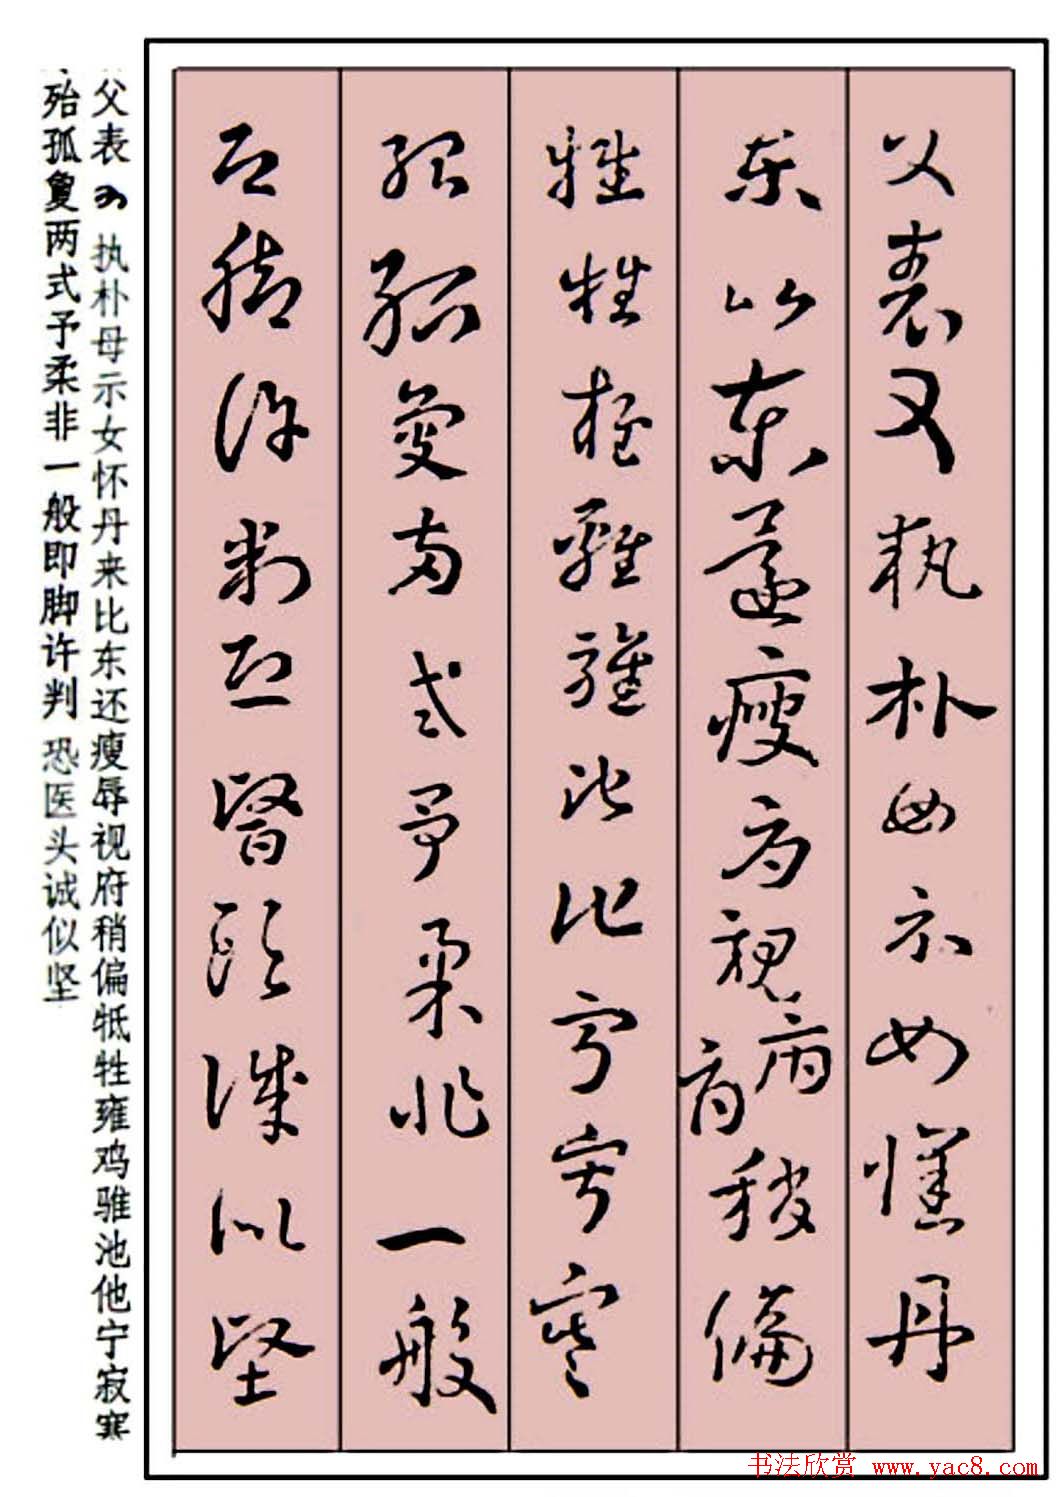 父表又执朴母示女怀丹
来比东还瘦辱视府稍偏
牴牲雍鸡骓池他宁寂寒
殆孤敻两式予柔非一般
即脚许判恐医头诚似坚
父表 执朴母示女怀丹来比东还瘦辱视府稍偏牴牲雍鸡骓池他宁寂寒
殆孤敻两式予柔非一般即脚许判恐医头诚似坚
书法欣赏 www.yac8.com